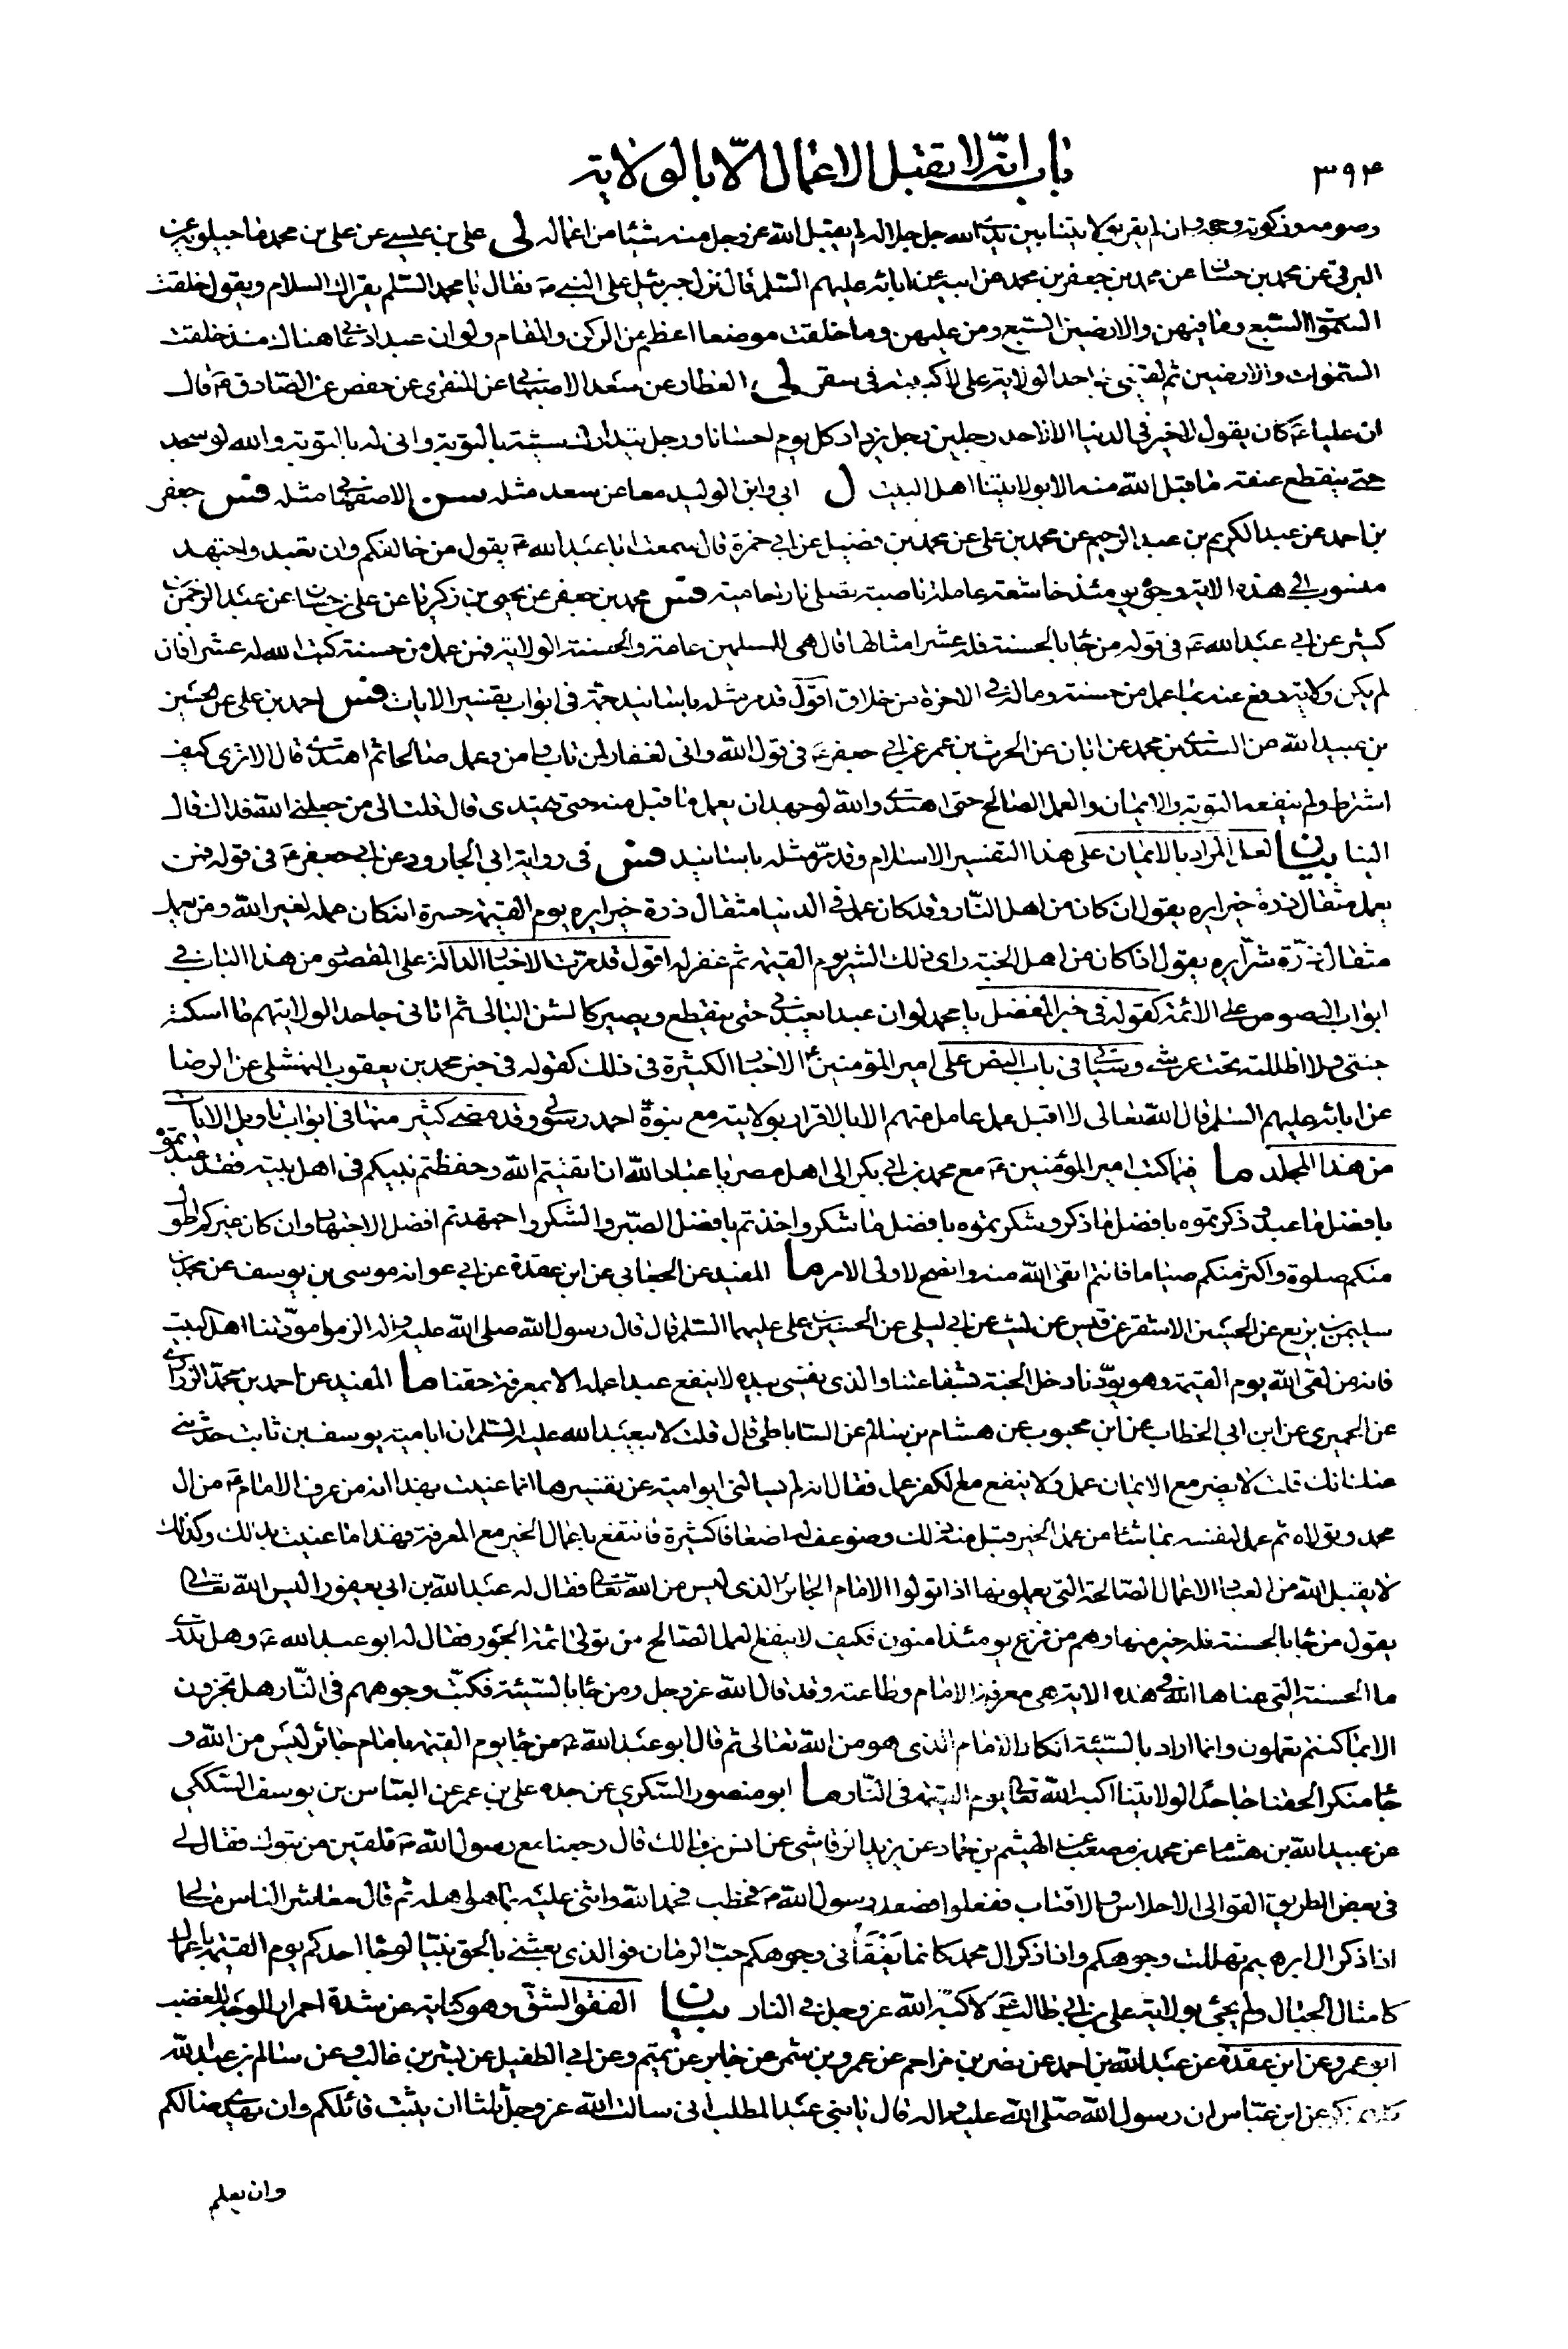 ٣٩۴
باب انه لا يقبل الاعمال الّا بالولاية
وصومه وزكوته وحجه وان لم يقر بولايتنا بين يدى الله جل جلاله لم يقبل الله عز وجل منه شيئا من اعماله لى على بن عيسى عن على بن محمد ماجيلويه عن
البرقى عن محمد بن حسان عن محمد بن جعفر بن محمد عن ابيه عن ابائه عليهم السلم قال نزل جبرئيل على النبى ص فقال يا محمد السلم يقراك السلام ويقول خلقت
السموات السبع وما فيهن والارضين السبع ومن عليهن وما خلقت موضعا اعظم من الركن والمقام ولو ان عبدا دعانى هناك منذ خلقت
السموات والارضين ثم لقينى جاحدا لولاية على لاكببته فى سقر لى العطار عن سعد الاصبهانى عن المنقرى عن حفص عن الصادق ع قال
ان عليا ع كان يقول لا خير فى الدنيا الا لاحد رجلين رجل يزداد كل يوم احسانا ورجل يتدارك سيئته بالتوبة وانى له بالتوبة والله لو سجد
حتى ينقطع عنقه ما قبل الله منه الا بولايتنا اهل البيت ل ابى وابن الوليد معا عن سعد مثله سن الاصفهانى مثله فس جعفر
بن احمد عن عبد الكريم بن عبد الرحيم عن محمد بن على عن محمد بن فضيل عن ابى حمزة قال سمعت ابا عبد الله ع يقول من خالفكم وان تعبد واجتهد
منسوب الى هذه الاية وجوه يومئذ خاشعة عاملة ناصبة تصلى نارا حامية فس محمد بن جعفر عن يحيى بن زكريا عن على بن حسان عن عبد الرحمن
كثير عن ابى عبد الله ع فى قوله من جا بالحسنة فله عشر امثالها قال هى للمسلمين عامة والحسنة الولاية فمن عمل من حسنة كتب الله له عشرا فان
لم يكن ولاية دفع عنه بما عمل من حسنة وما له فى الاخرة من خلاق اقول قد مر مثله باسانيد جمة فى ابواب تفسير الايات فس احمد بن على عن الحسين
بن عبيد الله عن السندى بن محمد عن ابان عن الحرث بن عمر عن ابى جعفر ع فى قول الله وانى لغفار لمن تاب وامن وعمل صالحا ثم اهتدى قال الا ترى كيف
اشترط ولم ينفعه التوبة والايمان والعمل الصالح حتى اهتدى والله لو جهد ان يعمل ما قبل منه حتى يهتدى قال قلت الى من جعلنى الله فداك قال
الينا بيان لعل المراد بالايمان على هذا التفسير الاسلام وقد مرّ مثله باسانيد فس فى رواية ابى الجارود عن ابى جعفر ع فى قوله فمن
يعمل مثقال ذرة خيرا يره يقول ان كان من اهل النّار وقد كان عمل فى الدنيا مثقال ذرة خيرا يره يوم القيمة حسرة ان كان عمله لغير الله ومن يعمل
مثقال ذرّة شرّا يره يقول اذا كان من اهل الجنة راى ذلك الشر يوم القيمة ثم غفر له اقول قد مرت الاخبار الدالة على المقصود من هذا الباب فى
ابواب النصوص على الائمة كقوله فى خبر المفضل يا محمد لو ان عبدا يعبدنى حتى ينقطع ويصير كالشن البالى ثم اتانى جاحدا لولايتهم ما اسكنته
جنتى ولا اظللته تحت عرشى وسياتى فى باب النص على امير المؤمنين ع الاخبار الكثيرة فى ذلك كقوله فى خبر محمد بن يعقوب النهشلى عن الرضا
عن ابائه عليهم السلم قال الله تعالى لا اقبل عمل عامل منهم الا بالاقرار بولايته مع نبوة احمد رسولى وقد مضى كثير منها فى ابواب تاويل الايات
من هذا المجلد ما فيما كتب امير المؤمنين ع مع محمد بن ابى بكر الى اهل مصر يا عباد الله ان اتقيتم الله وحفظتم نبيكم فى اهل بيته فقد عبدتموه
بافضل ما عبد وذكرتموه بافضل ما ذكر وشكرتموه بافضل ما شكر واخذتم بافضل الصبر والشكر واجتهدتم افضل الاجتهاد وان كان غيركم اطول
منكم صلوة واكثر منكم صياما فانتم اتقى الله منه وانصح لاولى الامر ما المفيد عن الجعابى عن ابن عقدة عن ابى عوانه موسى بن يوسف عن محمد بن
سليمن بن بزيع عن الحسين الاشقر عن قيس عن ليث عن ابى ليلى عن الحسين بن على عليهما السلم قال قال رسول الله صلى الله عليه واله الزموا مودّتنا اهل البيت
فانه من لقى الله يوم القيمة وهو يودّنا دخل الجنة بشفاعتنا والذى نفسى بيده لا ينفع عبدا عمله الا بمعرفة حقنا ما المفيد عن احمد بن محمد الزرارى
عن الحميرى عن ابن ابى الخطاب عن ابن محبوب عن هشام بن سالم عن الساباطى قال قلت لابيعبد الله عليه السلم ان ابا امية يوسف بن ثابت حدثنى
عنك انك قلت لا يضر مع الايمان عمل ولا ينفع مع الكفر عمل فقال انه لم يسالنى ابو امية عن تفسيرها انما عنيت بهذا انه من عرف الامام ع من ال
محمد وتولاه ثم عمل لنفسه بما شا من عمل الخير قبل منه ذلك وضوعف له اضعافا كثيرة فانتفع باعمال الخير مع المعرفة فهذا ما عنيت بذلك وكذلك
لا يقبل الله من العباد الاعمال الصالحة التى يعملونها اذا تولوا الامام الجائر الذى ليس من الله تعالى فقال له عبد الله بن ابى يعفور اليس الله تعالى
يقول من جا بالحسنة فله خير منها وهم من فزع يومئذ امنون فكيف لا ينفع العمل الصالح من تولى ائمة الجور فقال له ابو عبد الله ع وهل تدرى
ما الحسنة التى عناها الله فى هذه الاية هى معرفة الامام وطاعته وقد قال الله عز وجل ومن جا بالسّيئة فكبّت وجوههم فى النّار هل تجزون
الا ما كنتم تعملون وانما اراد بالسّيئة انكار الامام الذى هو من الله تعالى ثم قال ابو عبد الله ع من جا يوم القيمة بامام جائر ليس من الله و
جا منكرا لحقنا جاحدا لولايتنا اكبه الله تعالى يوم القيمة فى النّار ما ابو منصور السكرى عن جده على بن عمر عن العباس بن يوسف الشككى
عن عبيد الله بن هشام عن محمد بن مصعب عن الهيثم بن حماد عن يزيد الرقاشى عن انس بن مالك قال رجعنا مع رسول الله ص قافلين من تبوك فقال لى
فى بعض الطريق القوا لى الاحلاس والاقتاب ففعلوا فصعد رسول الله ص فخطب فحمد الله واثنى عليه بما هو اهله ثم قال معاشر الناس مالى
اذا ذكر ال ابرهيم تهللت وجوهكم واذا ذكر ال محمد كانما يفقأ فى وجوهكم حبّ الرمان فو الذى بعثنى بالحق نبيّا لو جا احدكم يوم القيمة باعمال
كامثال الجبال ولم يجئ بولاية على بن ابى طالب ع لاكبّه الله عز وجل فى النار بيان الفقو الشقّ وهو كناية عن شدة احمرار الوجه للغضب
ابو عمرو عن ابن عقدة عن عبد الله بن احمد عن نصر بن مزاحم عن عمرو بن شمر عن جابر عن تميم وعن ابى الطفيل عن بشر بن غالب وعن سالم بن عبد الله
كلهم ذكر عن ابن عبّاس ان رسول الله صلّى الله عليه واله قال يا بنى عبد المطلب انى سالت الله عز وجل ثلثا ان يثبت قائلكم وان يهدى ضالكم
وان يعلم